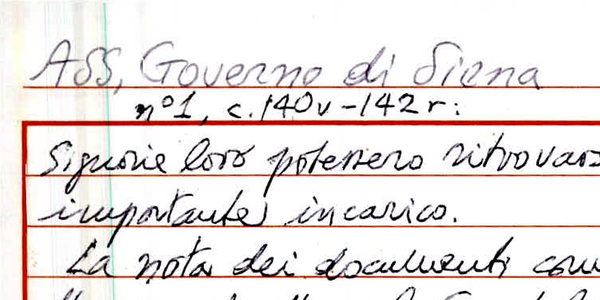 ASS, Governo di Siena
n°1, c.140v-142r:
Signorie loro potessero ritrovars
importante incarico.
La nota dei documenti com